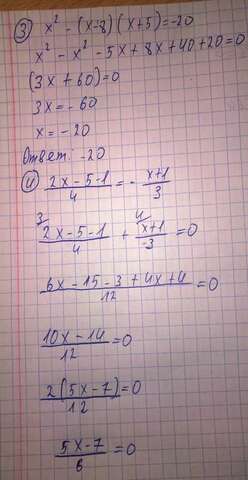 ③ x² - (x-8)(x+5)=-20
x² - x² - 5x + 8x + 40 + 20 = 0
(3x + 60) = 0
3x = - 60
x = - 20
Ответ: -20
④ (2x - 5 - 1)/4 = - (x+1)/3
³(2x - 5 - 1)/4 + ⁴(x+1)/-3 = 0
(6x - 15 - 3 + 4x + 4)/12 = 0
(10x - 14)/12 = 0
2(5x - 7)/12 = 0
(5x - 7)/6 = 0